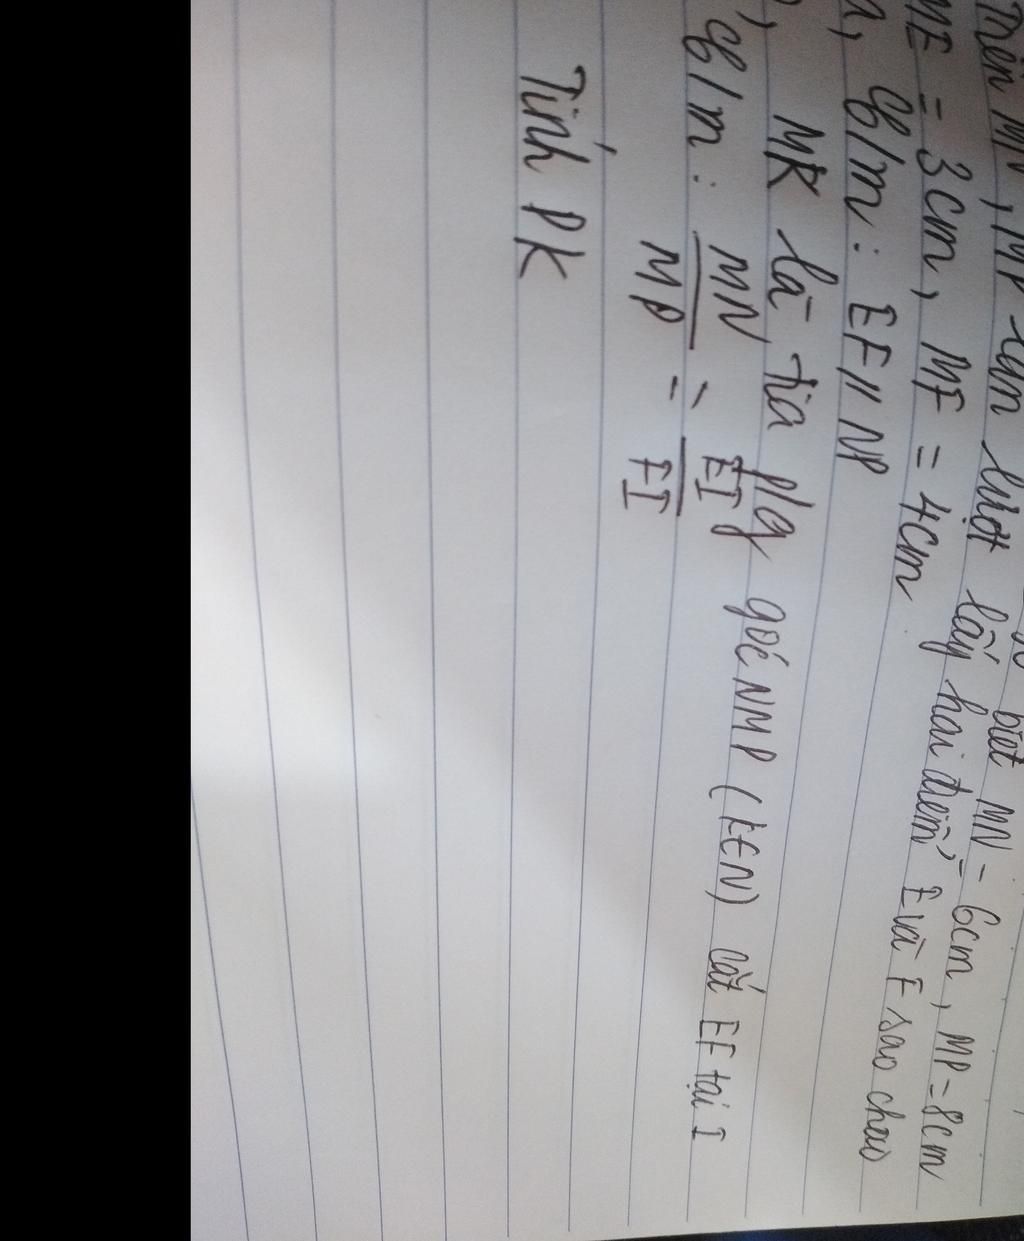 biết MN = 6cm, MP = 8cm
Trên MN, MP lần lượt lấy hai điểm E và F sao cho
ME = 3cm, MF = 4cm
a, CM/m: EF // NP
b, MK là tia p/g góc NMP (KEN) cắt EF tại I
CM/m: MN/MP = EI/FI
Tính PK